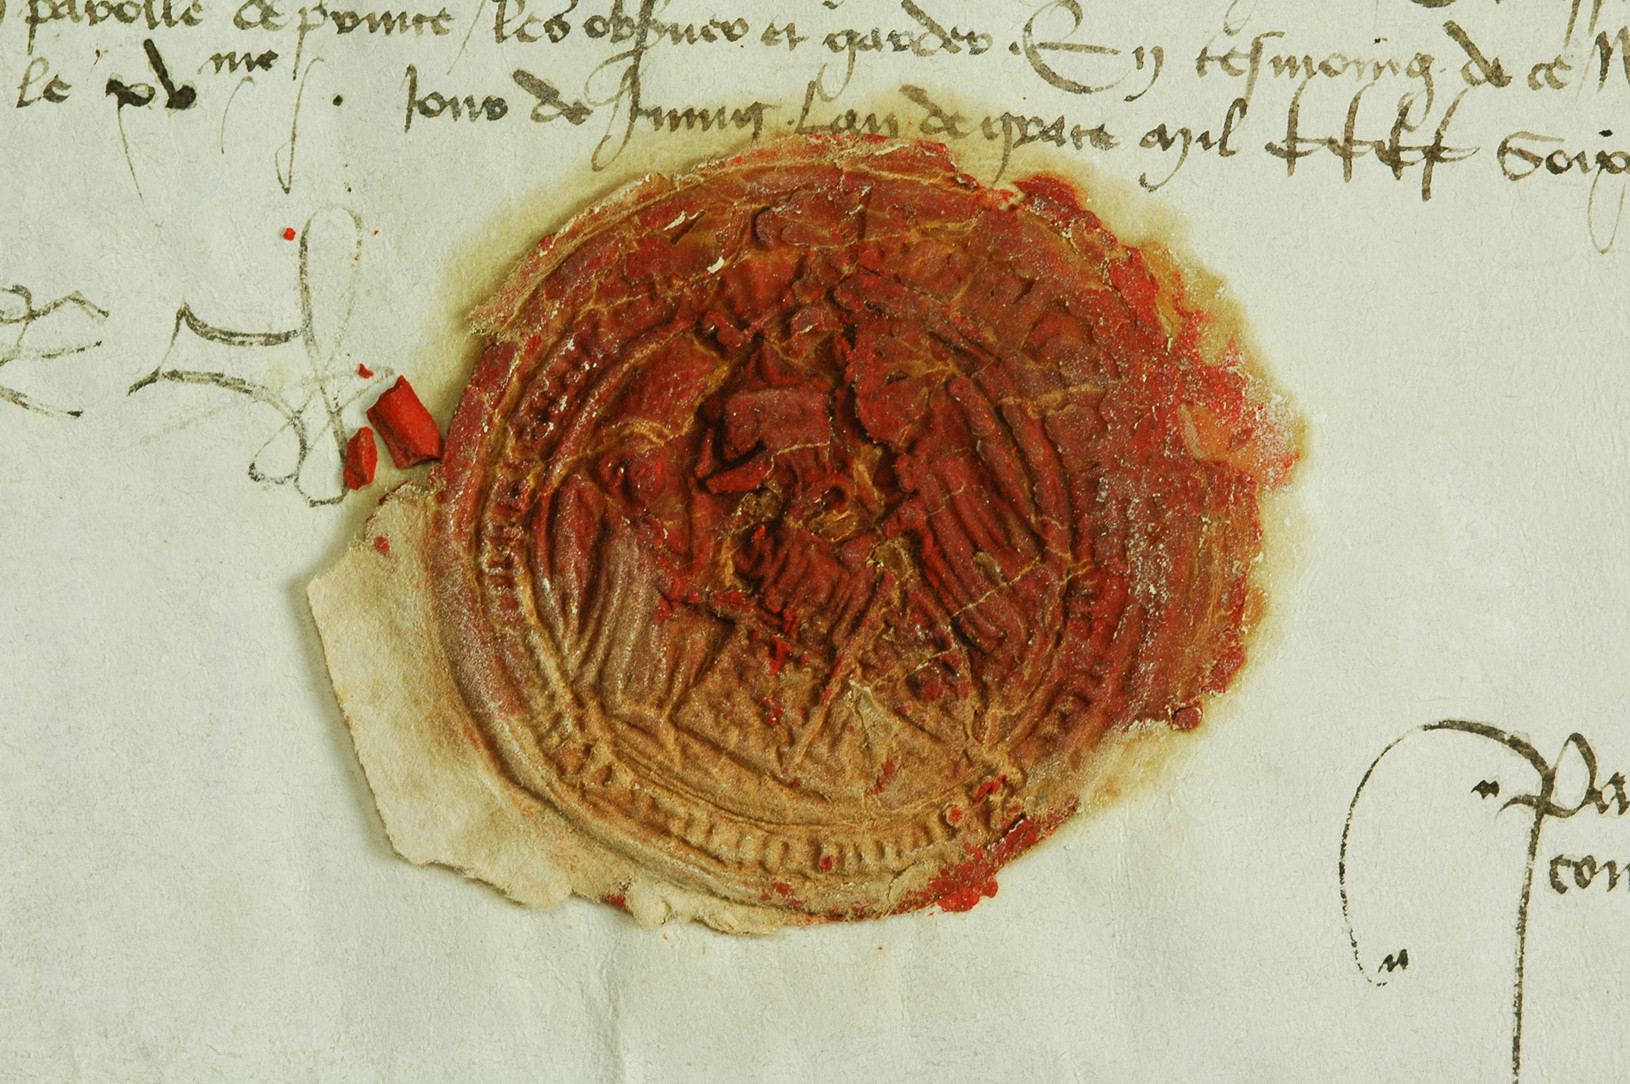 parolle de prince les observer et garder. En tesmoing de ce
le xvme jour de Juing Lan de grace Mil CCCC Soix
Pa
con